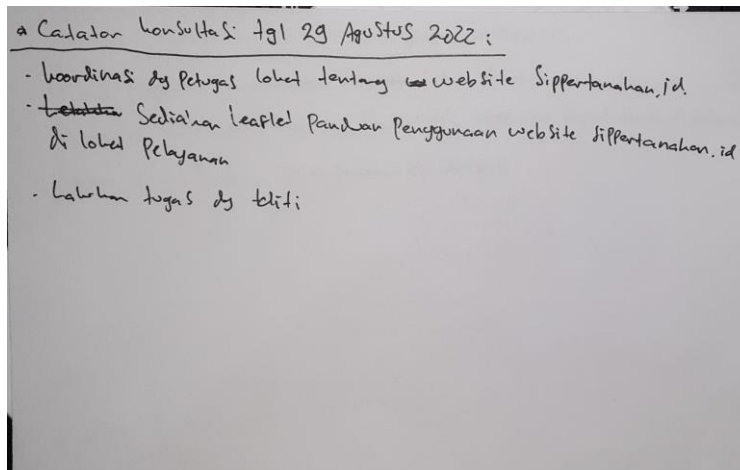 * Catatan konsultasi tgl 29 Agustus 2022 :
- koordinasi dg petugas loket tentang website Sippertanahan.id.
- Sediakan leaflet Panduan Penggunaan website Sippertanahan.id
di loket Pelayanan
- Lakukan tugas dg teliti